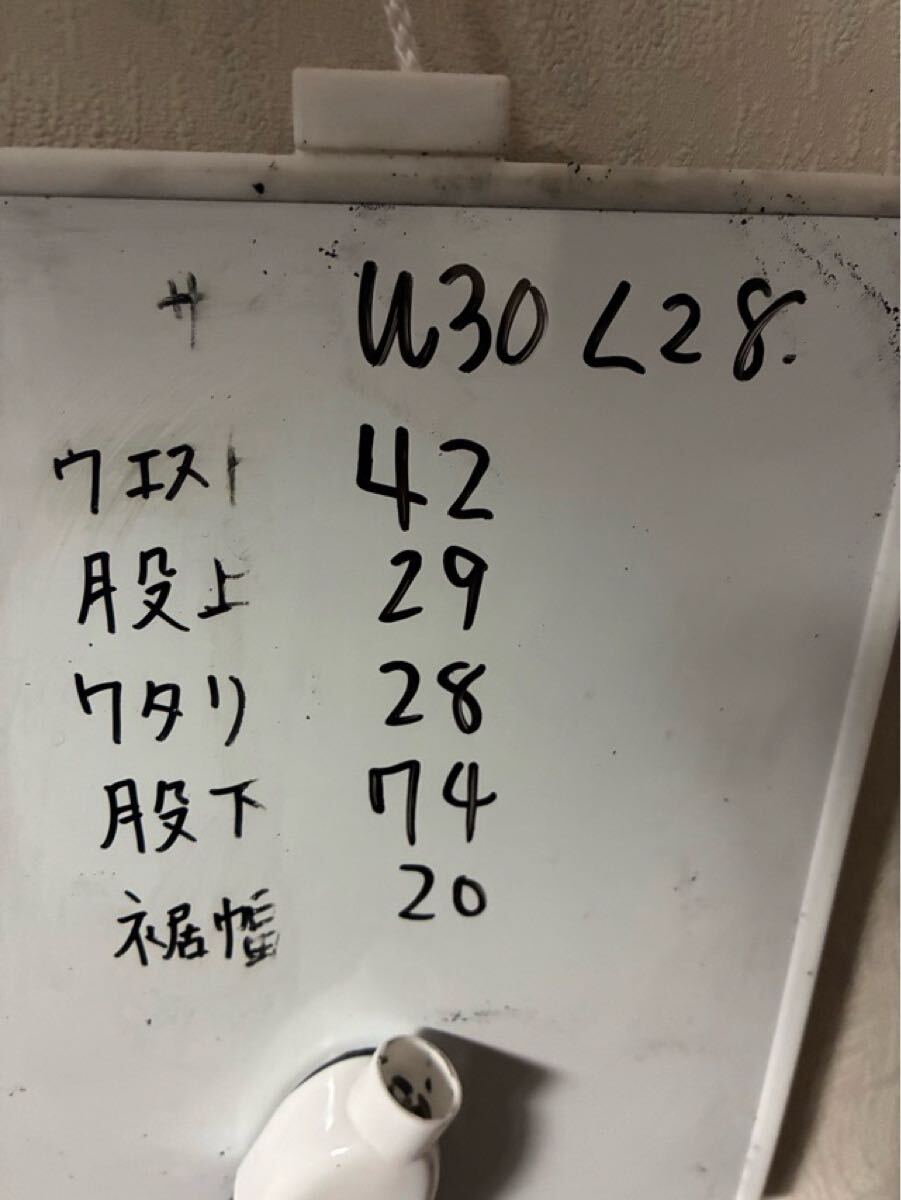 サ W30 L28.
ウエスト 42
股上 29
ワタリ 28
股下 74
裾幅 20